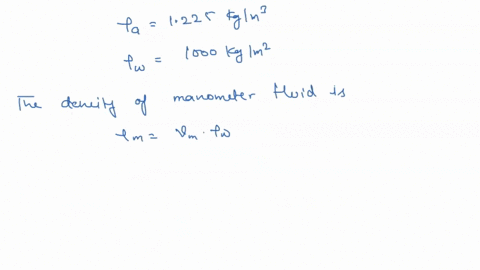 ρa = 1.225 kg/m³
ρw = 1000 kg/m²
The density of manometer fluid is
ρm = γm · ρw